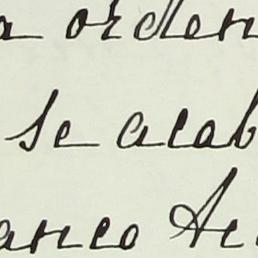 a orden
se acab
anco Ac